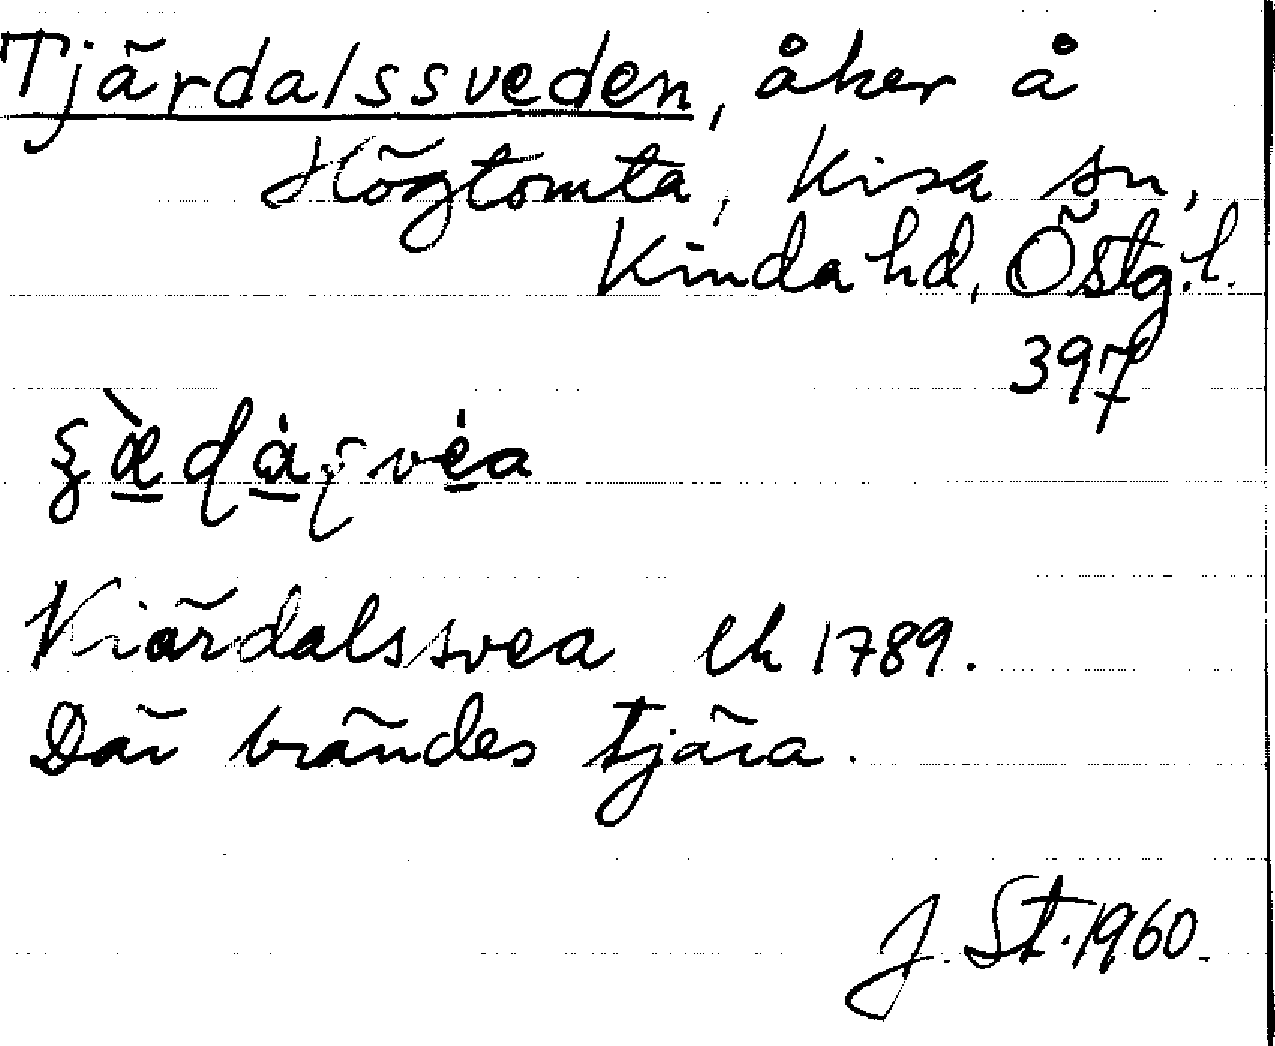 Tjärdalssveden, åker å
Högtomta, Kisa sn,
Kinda hd, Östg.l.
397
Kiärdalssvea lh 1789.
Där brändes tjära.
J. St. 1960.